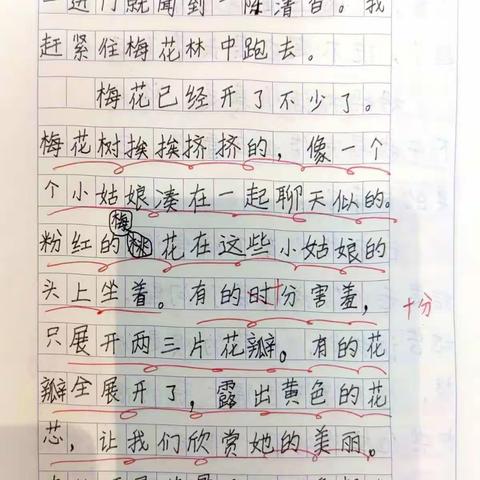 一进门就闻到一阵清香。我
赶紧住梅花林中跑去。
梅花已经开了不少了。
梅花树挨挨挤挤的，像一个
个小姑娘凑在一起聊天似的。
梅
粉红的桃花在这些小姑娘的
头上坐着。有的时分害羞，
十分
只展开两三片花瓣。有的花
瓣全展开了，露出黄色的花
芯，让我们欣赏她的美丽。